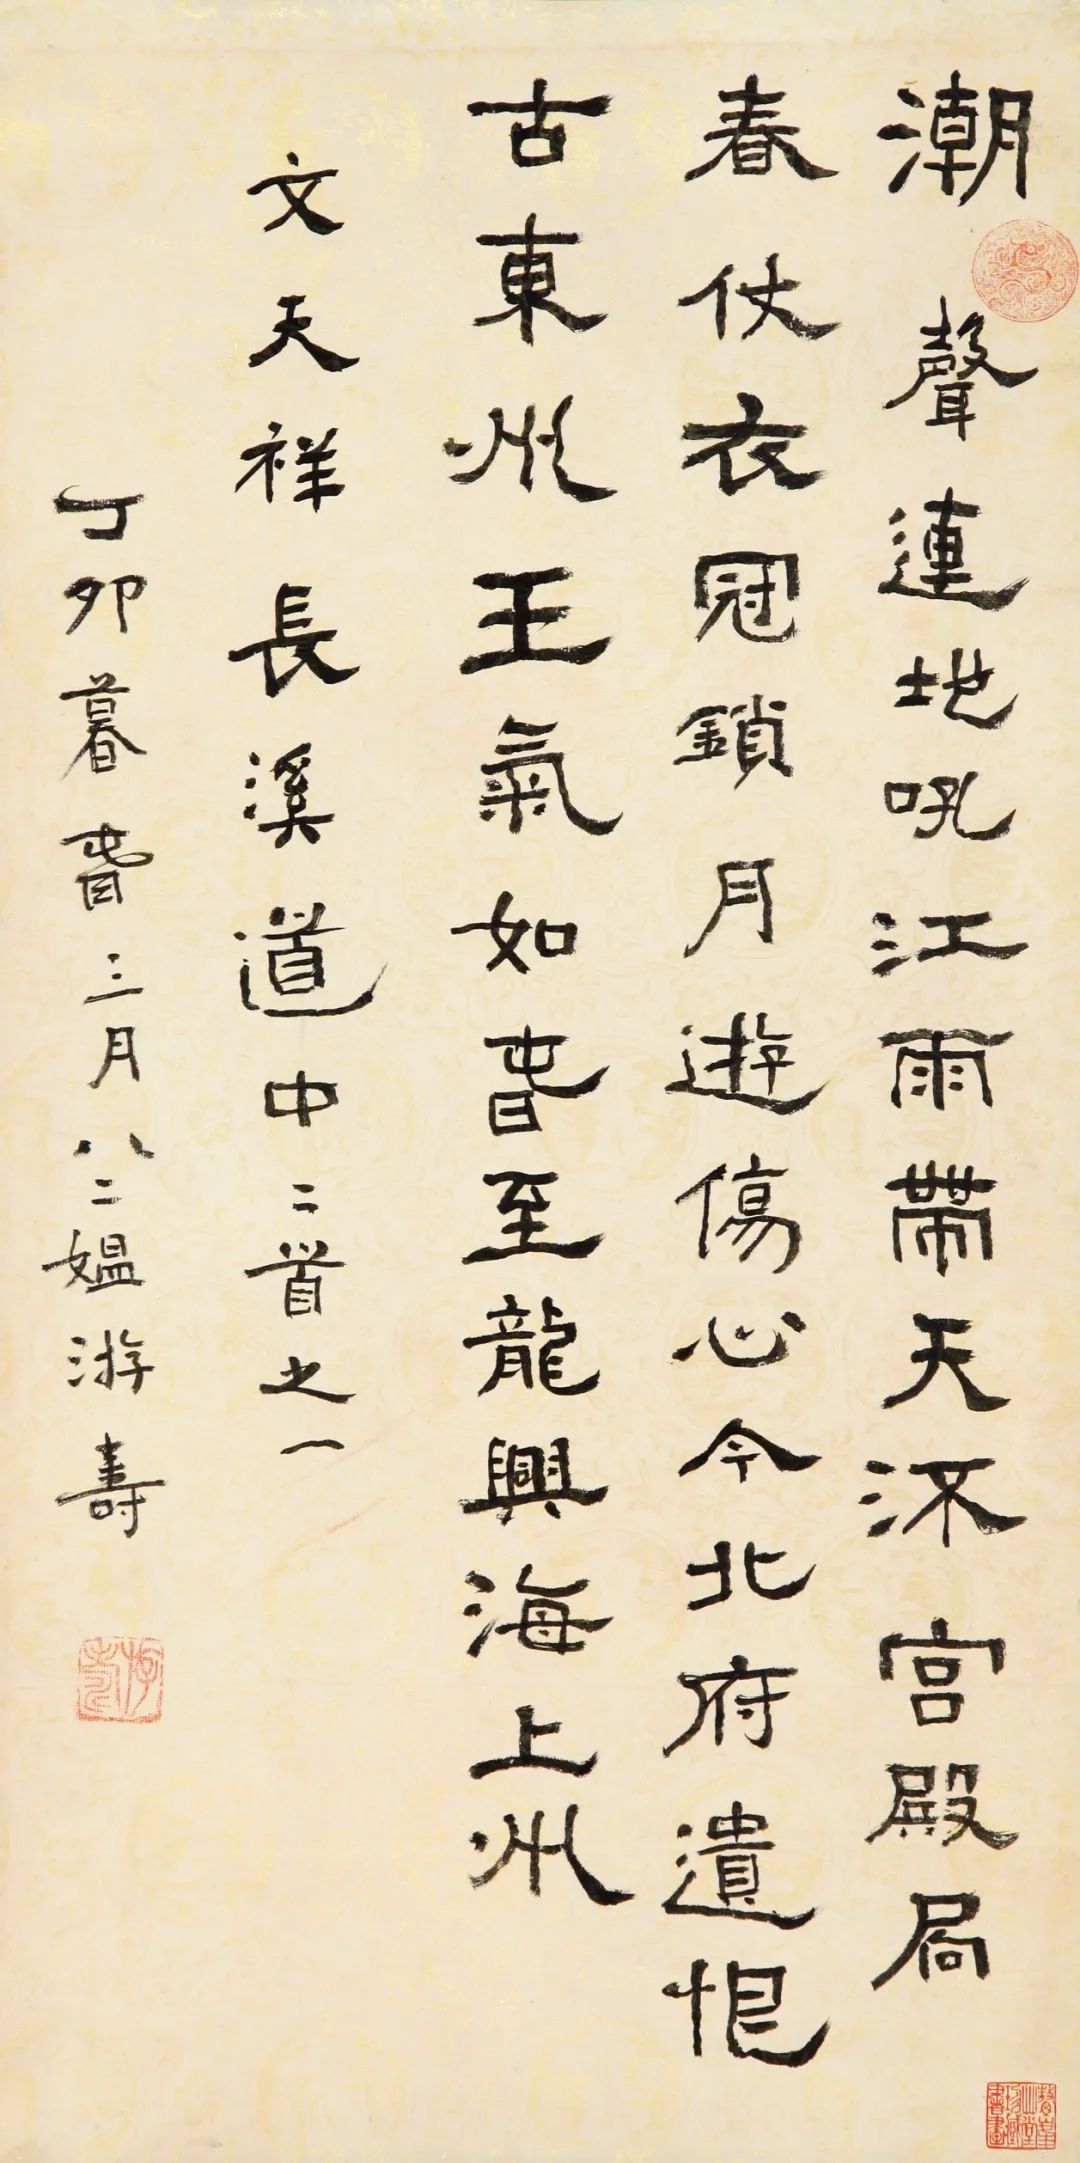 潮聲連地吼江雨帶天流宮殿扃
春仗衣冠鎖月遊傷心今北府遺恨
古東州王氣如春至龍興海上州
文天祥長溪道中二首之一
丁卯暮春三月八二媼游壽